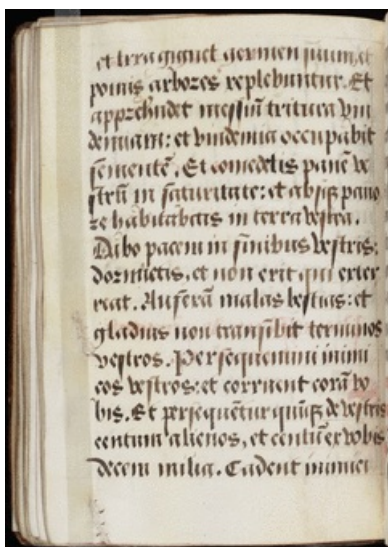 et terra gignet germen suum, et
pomis arbores replebuntur. Et
apprehendet messiū tritura vin
demiam: et vindemia occupabit
sementē. Et comedetis panē ve
strū in saturitate: et absq; pauo
re habitabitis in terra vestra.
Dabo pacem in finibus vestris:
dormietis, et non erit qui exter
reat. Auferā malas bestias: et
gladius non transibit terminos
vestros. Persequemini inimi
cos vestros: et corruent corā vo
bis. Et persequētur quīq; de vestris
centum alienos, et centū ex vobis
decem milia. Cadent inimici